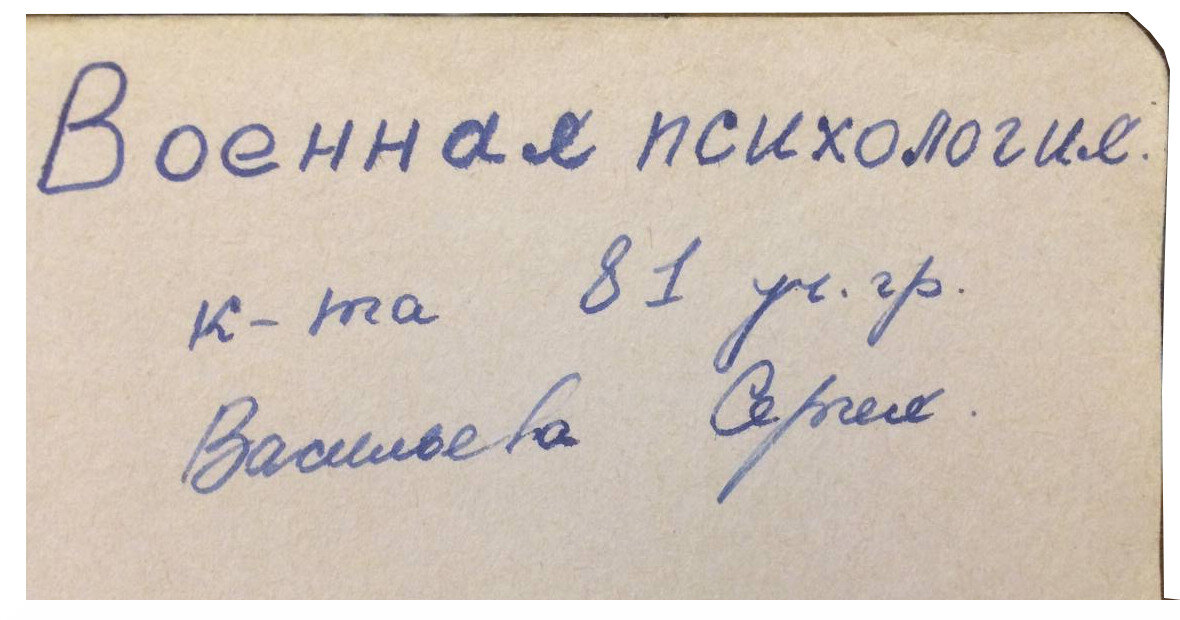 Военная психология.
к-та 81 уч. гр.
Васильева Сергея.